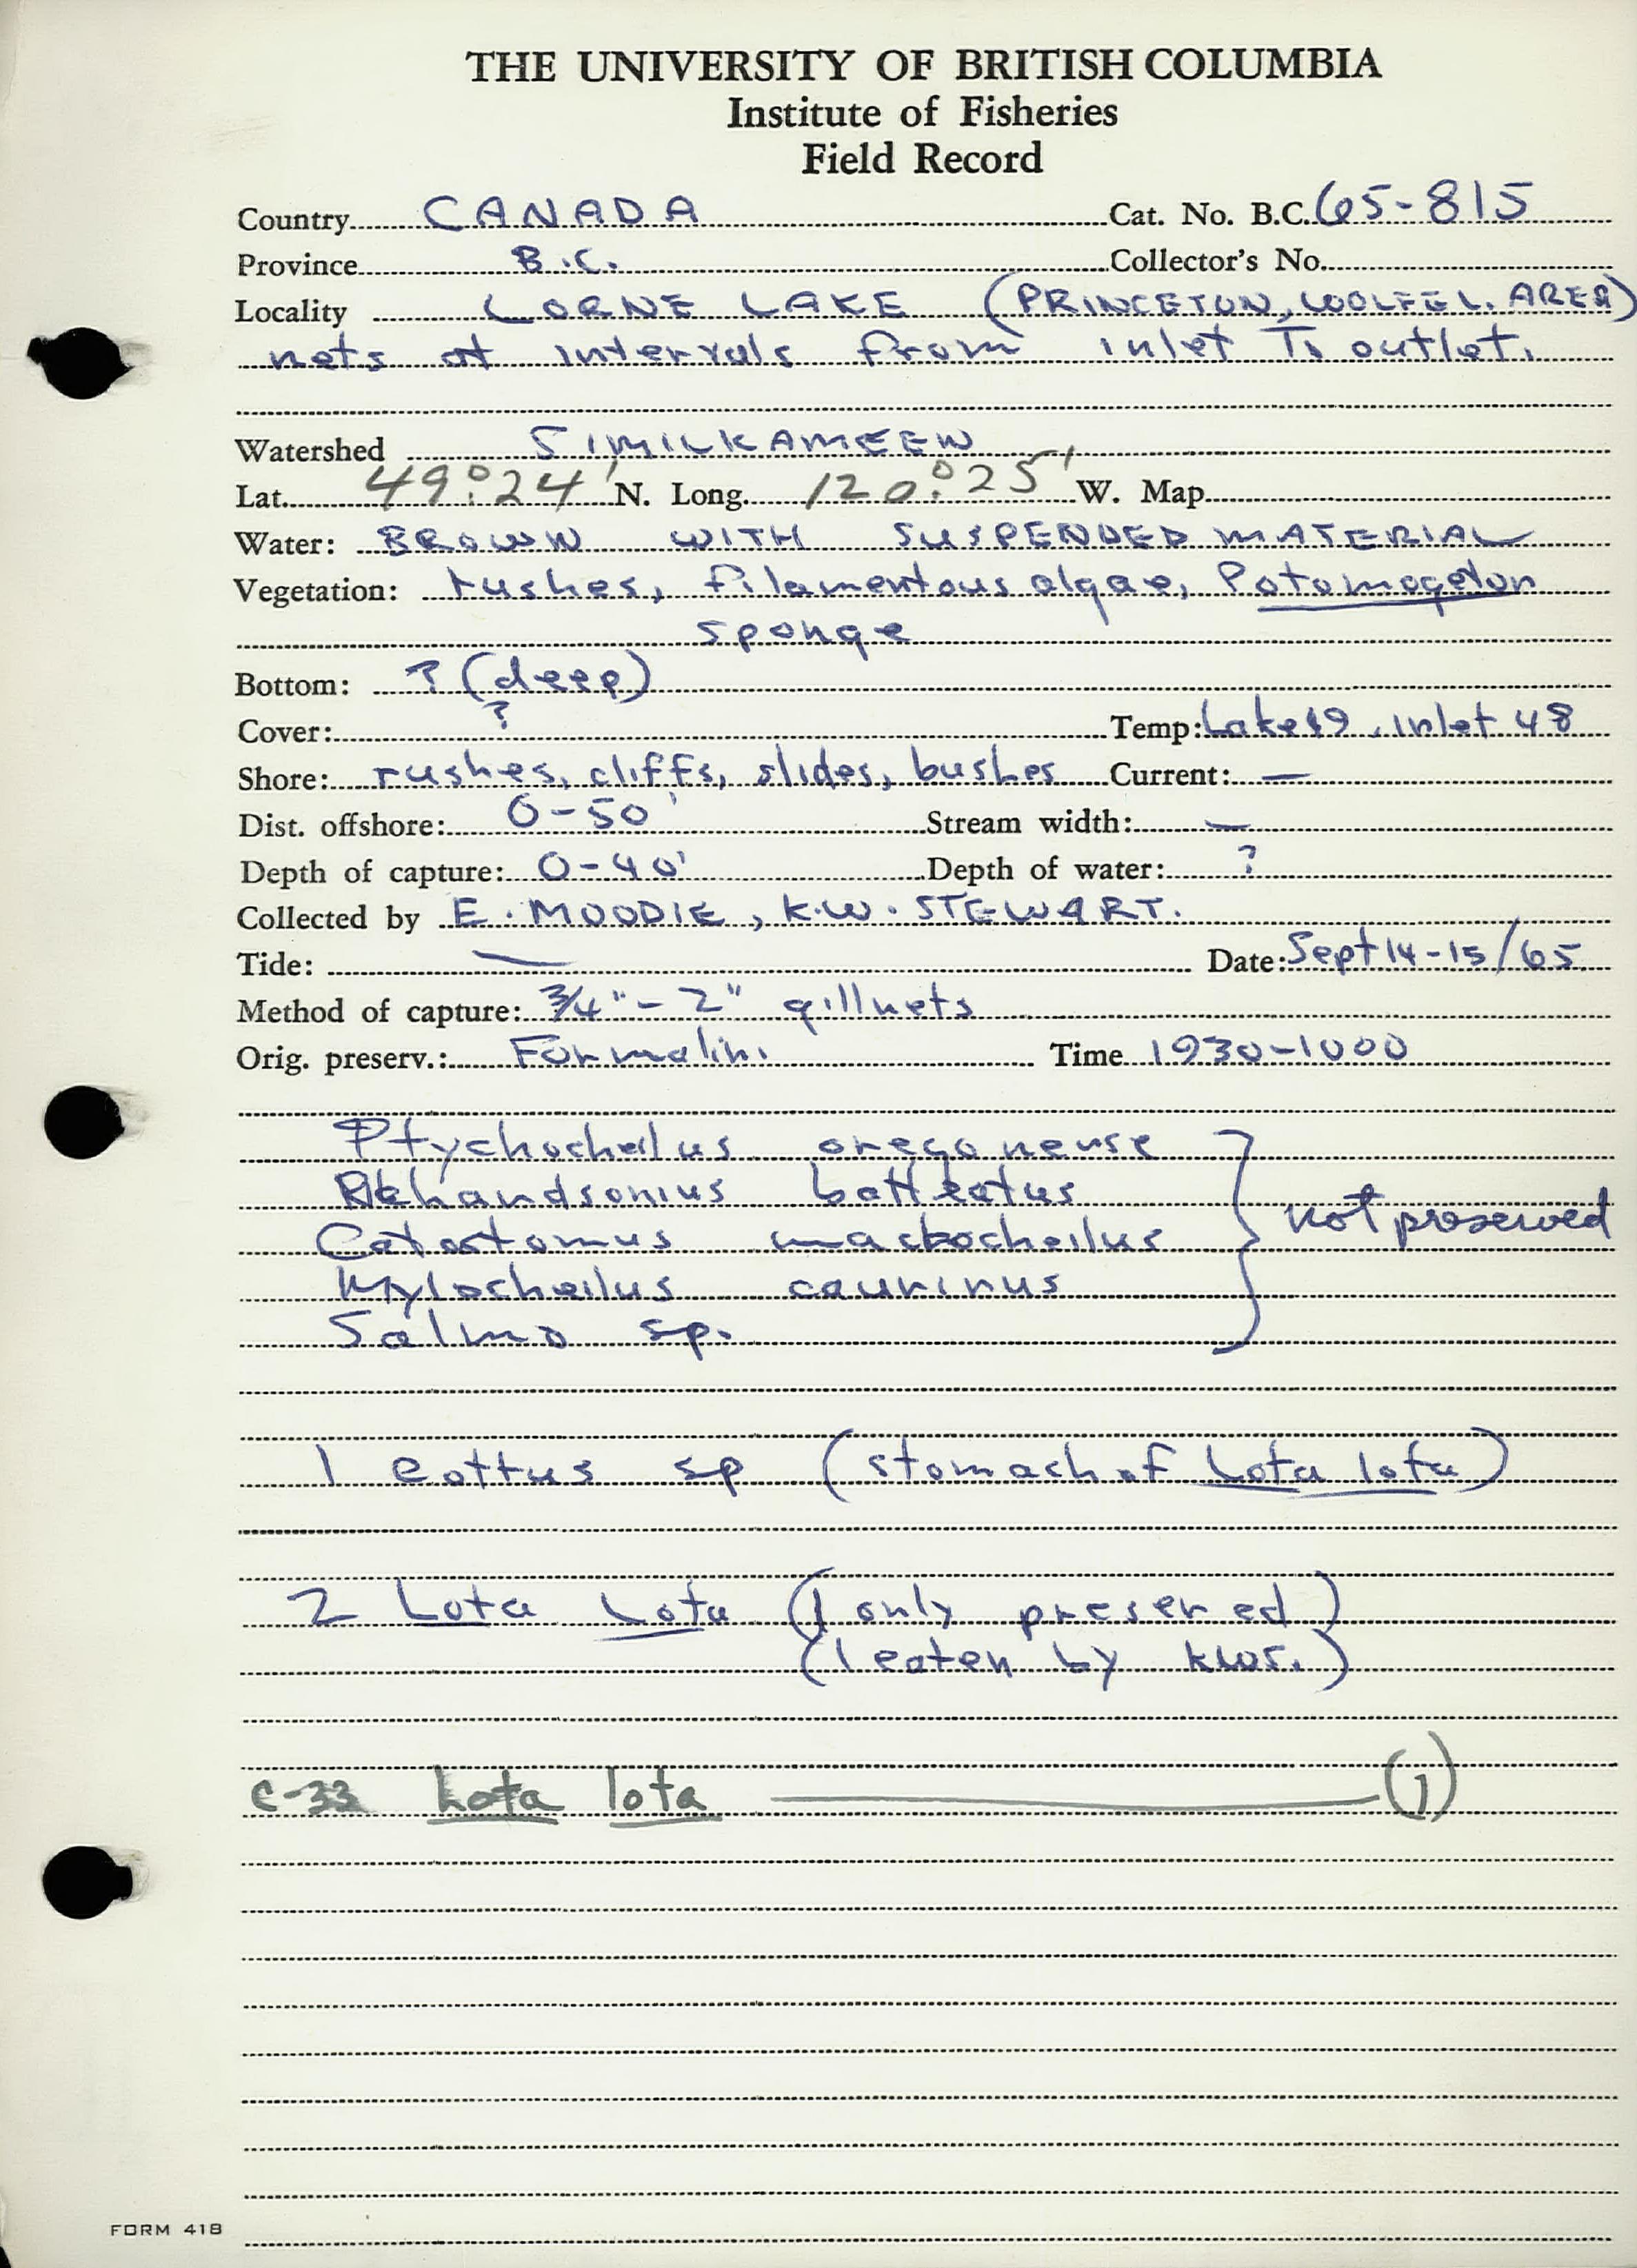 THE UNIVERSITY OF BRITISH COLUMBIA
Institute of Fisheries
Field Record
Country CANADA Cat. No. B.C. 65-815
Province B.C. Collector's No.
Locality LORNE LAKE (PRINCETON, WOLFE L. AREA)
nets at intervals from inlet To outlet.
Watershed SIMILKAMEEN
Lat. 49° 24' N. Long. 120° 25' W. Map
Water: BROWN WITH SUSPENDED MATERIAL
Vegetation: rushes, filamentous algae, Potomogeton
sponge
Bottom: ? (deep)
Cover: ? Temp: Lake 49, Inlet 48
Shore: rushes, cliffs, slides, bushes Current: —
Dist. offshore: 0-50' Stream width: —
Depth of capture: 0-40' Depth of water: ?
Collected by E. MOODIE, K.W. STEWART.
Tide: — Date: Sept 14-15/65
Method of capture: 3/4" - 2" gillnets
Orig. preserv.: Formalin. Time 1930-1000
Ptychocheilus oregonense
Richardsonius balteatus
Catostomus macrocheilus } not preserved
Mylocheilus caurinus
Salmo sp.
1 Cottus sp (stomach of Lota lota)
2 Lota Lota (1 only preserved)
(1 eaten by KWS.)
C-33 Lota lota — (1)
FORM 41B